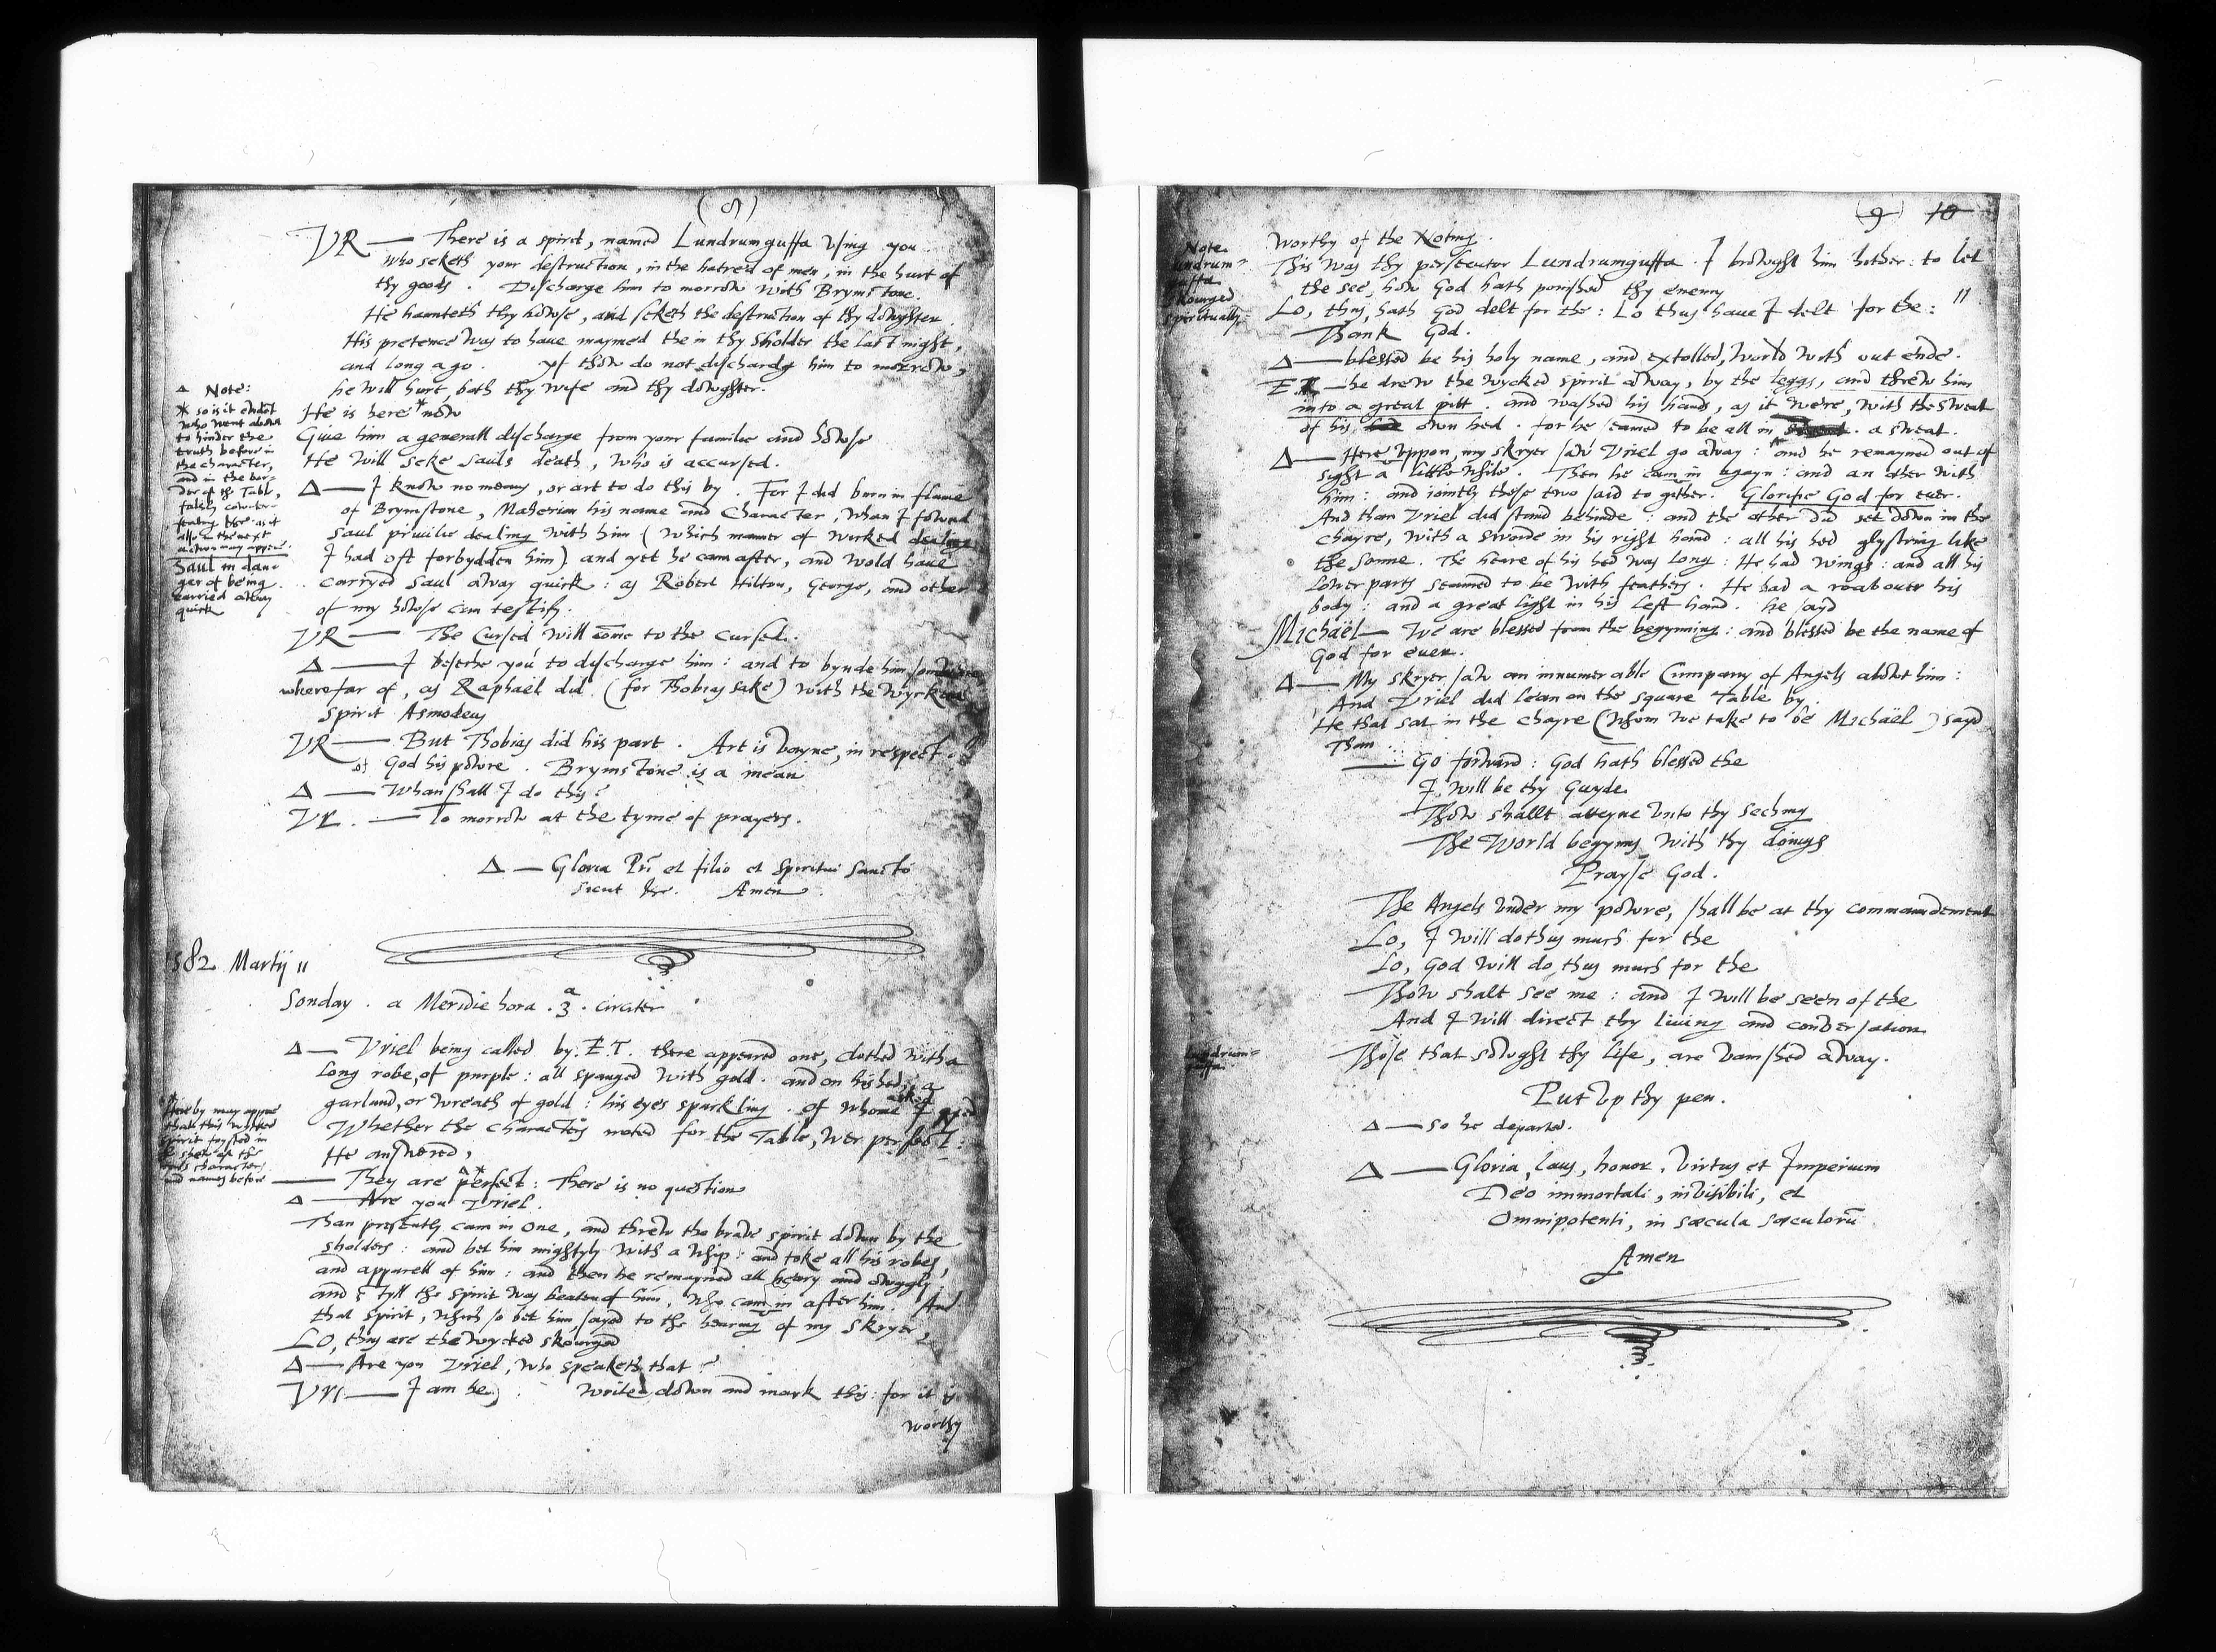 (8)
VR — There is a spirit, named Lundrumguffa Vsing you
who seketh your destruction, in the hatred of men, in the hurt of
thy goods. Discharge him to morrow with Brymstone.
He haunteth thy howse, and seketh the destruction of thy dowghter.
His pretence was to haue maymed the in thy Sholder the last night,
and long ago. yf thow do not dischardg him to morrow,
he will hurt, both thy wife and thy dowghter.
He is here * now
Giue him a generall discharge from your familie and howse
He will seke Sauls death, who is accursed.
Δ — I know no meanes, or art to do this by. For I did burn in flame
of Brymstone, Maherion his name and Character, whan I fownd
Saul priuilie dealing with him (which manner of wicked dealing
I had oft forbydden him) and yet he cam after, and wold haue
carryed Saul away quick: as Robert Hilton, George, and other
of my howse can testify.
VR — The Cursed will come to the cursed.
Δ — I beseche you to discharge him: and to bynde him somwhere
where far of, as Raphaël did (for Thobias sake) with the wycked
spirit Asmodeus
VR — But Thobias did his part. Art is vayne, in respect.
of God his powre. Brymstone is a mean
Δ — Whan shall I do this?
VR. — To morrow at the tyme of prayers.
Δ — Gloria Pri et filio et Spiritui Sancto
sicut &c. Amen.
Δ Note:
* so is it
who went about
to hinder the
truth before in
the character,
and in the bor-
der of the Table,
falsly cownter-
feating &c. as it
also in the next
action may appere.
Saul in dan-
ger of being
carried away
quick
1582 Martij 11
Sonday. a Meridie hora .3.a circiter
Δ — Vriel being called by. E.T. there appeared one, clothed with a
long robe, of purple: all spanged with gold. and on his hed, a
garland, or wreath of gold: his eyes sparkling. of whome I axed
Whether the characters noted for the Table, wer perfect:
He answered,
— They are ^* perfect: There is no question
Δ — Are you Vriel.
Than presently cam in One, and threw the braue spirit down by the
sholders: and bet him mightyly with a whip: and toke all his robes,
and apparell of him: and then he remayned all heary and owggly
and styll the spirit was beaten of him, who cam in after him. And
that spirit, which so bet him, sayed to the hearing of my skryer,
LO, thus are the wycked skourged
Δ — Are you Vriel, who speaketh that?
Vri — I am he. Write down and mark this: for it is
worthy
Hereby may appere
that this wycked
spirit foysted in
shew of the
characters
and names before
(9) 10
Worthy of the Noting.
This was thy persecutor Lundrumguffa. I browght him hether: to let
the see, how God hath ponished thy enemy
Lo, thus, hath God delt for the: Lo thus haue I delt for the:
Thank God.
Δ — blessed be his holy name, and extolled, world with out ende.
E.T. — he drew the wycked spirit away, by the leggs, and threw him
into a great pitt. and washed his hands, as it were, with the sweat
of his own hed. for he seamed to be all in a sweat.
Δ — Here vppon, my skryer saw Vriel go away: and he remayned out of
sight a little while. Then he cam in agayn: and an other with
him: and iointly those two said to gether. Glorifie God for euer.
And than Vriel did stand behinde: and the other did set down in the
chayre, with a sworde in his right hand: all his hed glystring like
the sonne. The heare of his hed was long: He had wings: and all his
lower parts seamed to be with feathers. He had a roab ouer his
body: and a great light in his left hand. he sayd
Michaël — We are blessed from the begynning: and blessed be the name of
God for euer.
Δ — My skryer saw an innumerable Cumpany of Angels abowt him:
And Vriel did lean on the square Table by.
He that sat in the chayre (whom we take to be Michaël) sayd
Than
— Go forward: God hath blessed the
I will be thy Guyde
Thow shallt atteyne vnto thy seching
The World begynns with thy doings
Prayse God.
The Angels vnder my powre, shall be at thy commaundement
Lo, I will do thus much for the
Lo, God will do thus much for the
Thow shalt see me: and I will be seen of the
And I will direct thy liuing and conversation
Those that sowght thy life, are vanished away.
Put vp thy pen.
Δ — So he departed.
Δ — Gloria, laus, honor, virtus et Imperium
Deo immortali, invisibili, et
Omnipotenti, in sæcula sæculorū
Amen
Note.
Lundrum-
guffa
skourged
spiritually.
Lundrum-
guffa